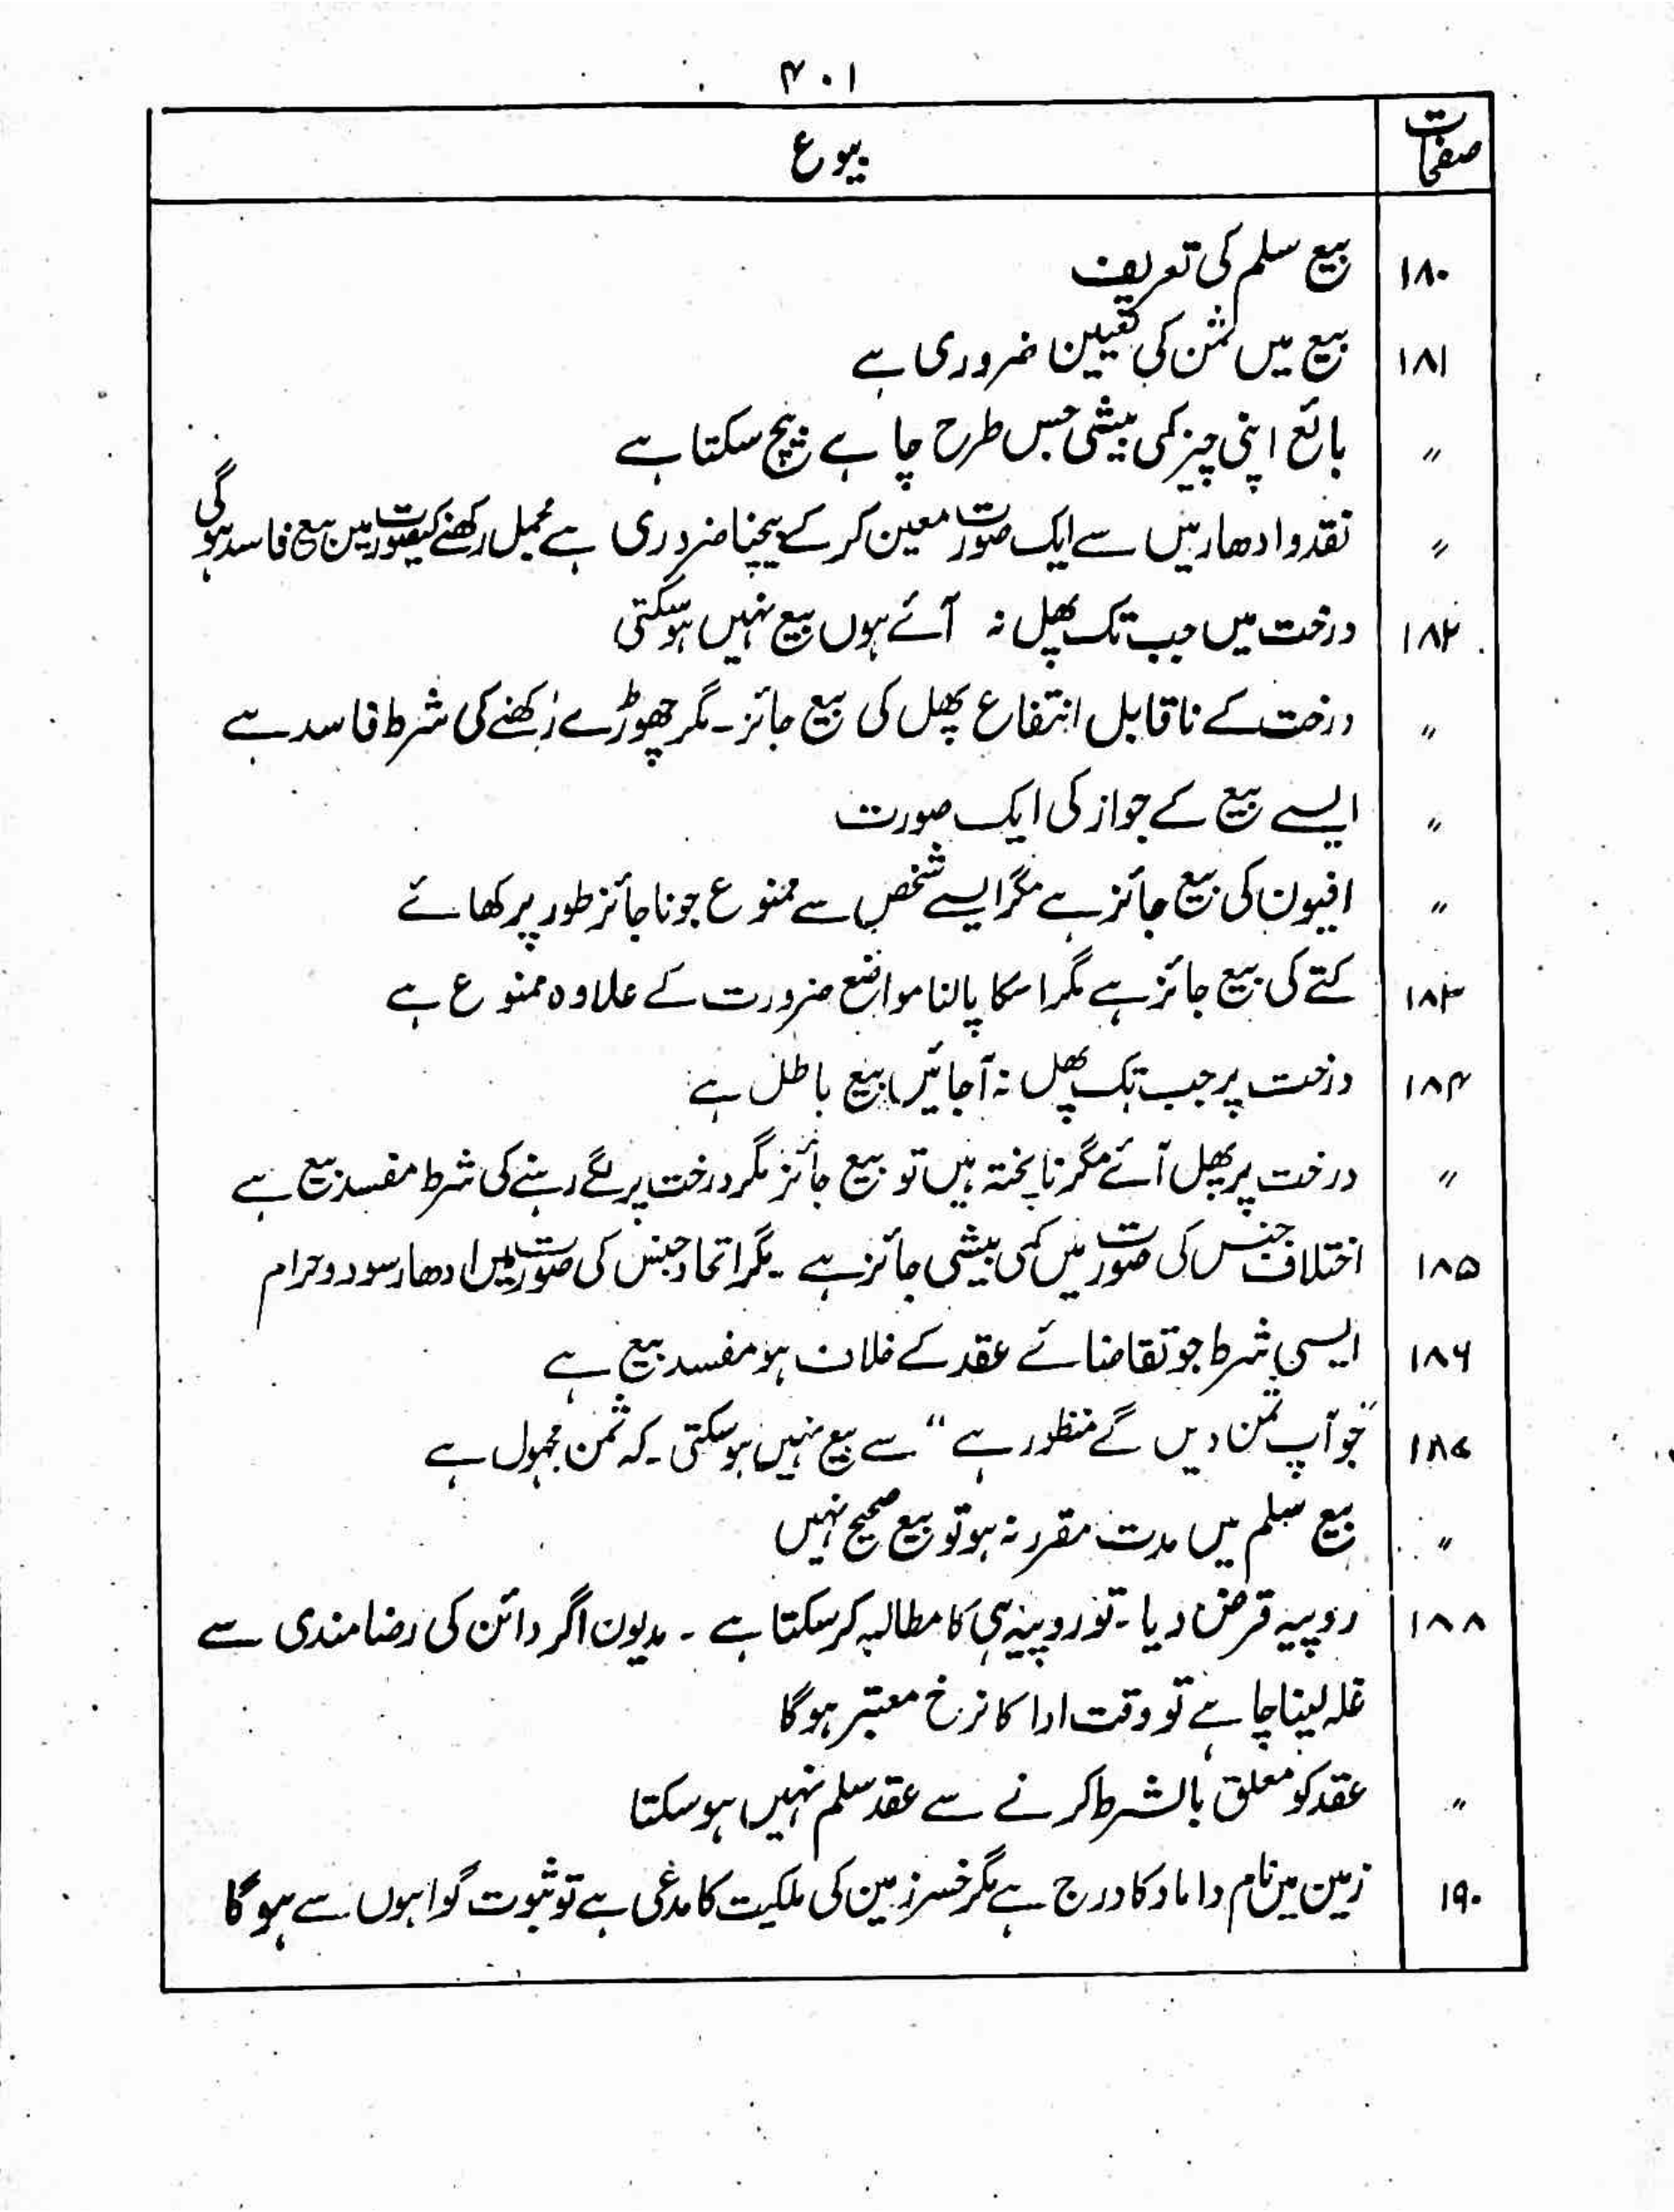 ۴۰۱
صفحات بیوع
۱۸۰ بیع سلم کی تعریف
۱۸۱ بیع میں ثمن کی تعیین ضروری ہے
〃 بائع اپنی چیز کمی بیشی جس طرح چاہے بیچ سکتا ہے
〃 نقد و ادھار میں سے ایک صورت معین کرکے بیچنا ضروری ہے مجمل رکھنے کیصورت میں بیع فاسد ہوگی
۱۸۲ درخت میں جب تک پھل نہ آئے ہوں بیع نہیں ہوسکتی
〃 درخت کے ناقابل انتفاع پھل کی بیع جائز۔ مگر چھوڑے رکھنے کی شرط فاسد ہے
〃 ایسے بیع کے جواز کی ایک صورت
〃 افیون کی بیع جائز ہے مگر ایسے شخص سے ممنوع جو ناجائز طور پر کھائے
۱۸۳ کتے کی بیع جائز ہے مگر اسکا پالنا مواضع ضرورت کے علاوہ ممنوع ہے
۱۸۴ درخت پر جب تک پھل نہ آجائیں بیع باطل ہے
〃 درخت پر پھل آئے مگر ناپختہ ہیں تو بیع جائز مگر درخت پر لگے رہنے کی شرط مفسد بیع ہے
۱۸۵ اختلاف جنس کی صورت میں کمی بیشی جائز ہے ۔ مگر اتحاد جنس کی صورت میں ادھار سود و حرام
۱۸۶ ایسی شرط جو تقاضائے عقد کے خلاف ہو مفسد بیع ہے
۱۸۷ "جو آپ ثمن دیں گے منظور ہے" سے بیع نہیں ہوسکتی ۔ کہ ثمن مجہول ہے
〃 بیع سلم میں مدت مقرر نہ ہو تو بیع صحیح نہیں
۱۸۸ روپیہ قرض دیا ۔ تو روپیہ ہی کا مطالبہ کرسکتا ہے ۔ مدیون اگر دائن کی رضامندی سے
غلہ لینا چاہے تو وقت ادا کا نرخ معتبر ہوگا
〃 عقد کو معلق بالشرط کرنے سے عقد سلم نہیں ہوسکتا
۱۹۰ زمین میں نام داماد کا درج ہے مگر خسر زمین کی ملکیت کا مدعی ہے تو ثبوت گواہوں سے ہوگا